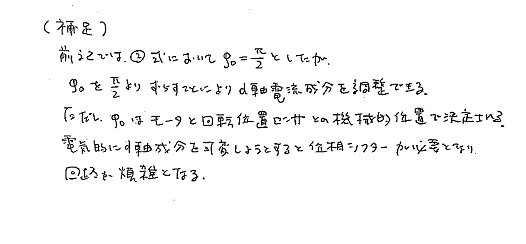 (補足)
前ページでは、② 式において φ₀ = π/2 としたが、
φ₀ を π/2 よりずらすことにより d軸電流成分を調整できる。
ただし、φ₀ はモータと回転位置センサとの機械的位置で決定される。
電気的にd軸成分を可変しようとすると位相シフターが必要となり、
回路が煩雑となる。